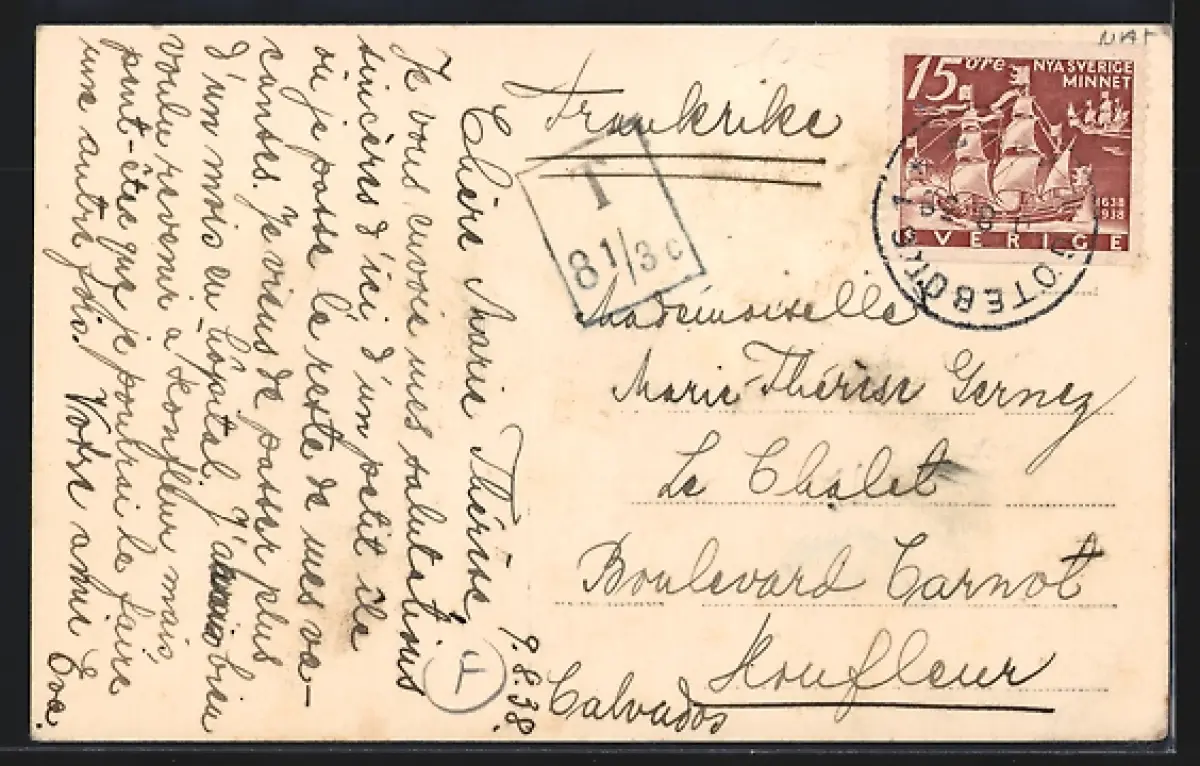 Chère Marie Thérèse,
Je vous envoie mes salutations
sincères d'ici, d'un petit île
où je passe le reste de mes va-
cantes. Je viens de passer plus
d'un mois au hôpital. J'aurais bien
voulu revenir à Honfleur mais
peut-être que je pourrai le faire
une autre fois. Votre amie Eva.
9.8.38.
Frankrike
T
8 1/3 c
15 öre NYA SVERIGE
MINNET
1638
1938
SVERIGE
GÖTEBORG 1
Mademoiselle
Marie-Thérèse Gernez
Le Chalet
Boulevard Carnot
Honfleur
Calvados